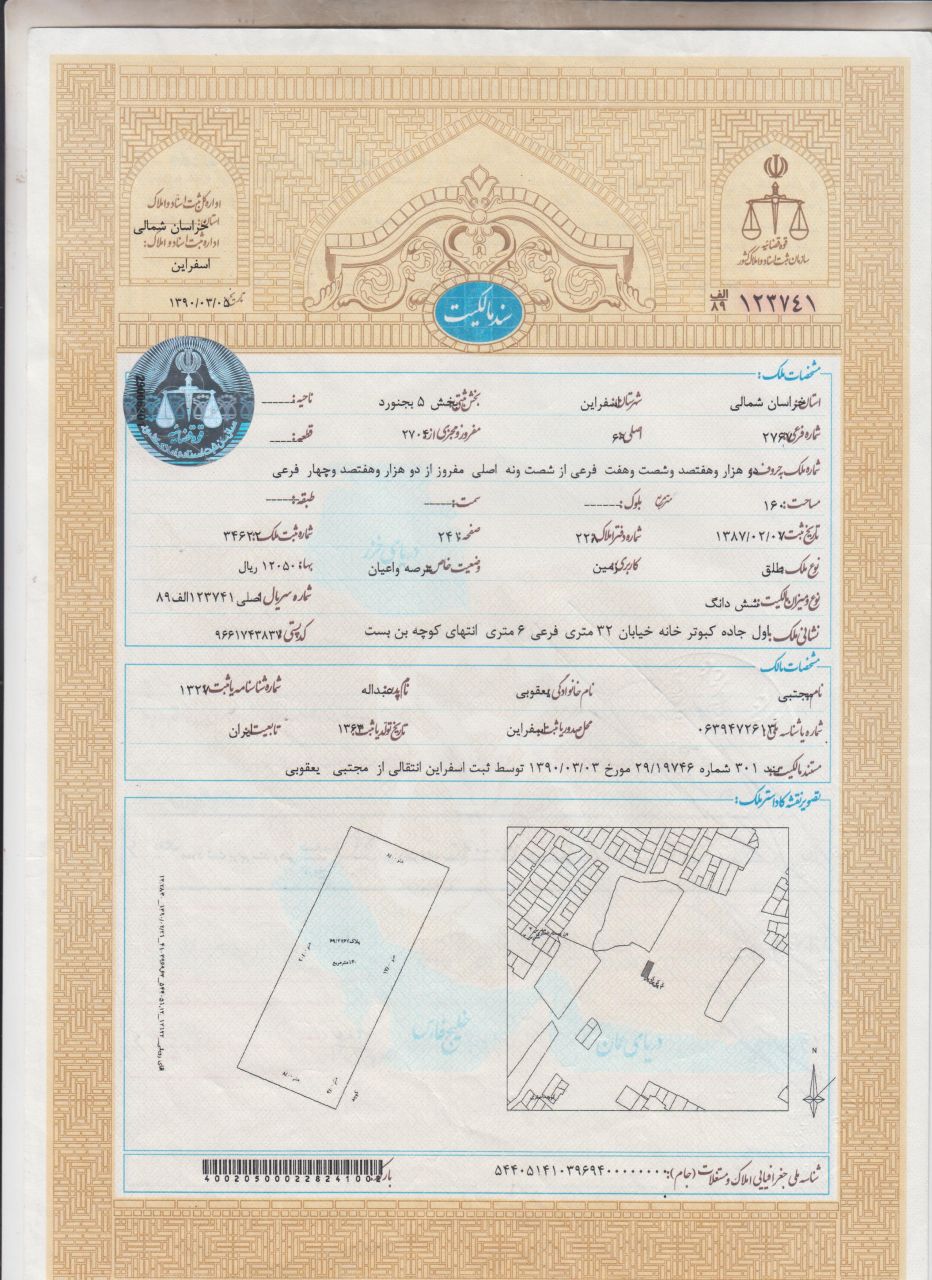 اداره کل ثبت اسناد و املاک
استان: خراسان شمالی
اداره ثبت اسناد و املاک:
اسفراین
تاریخ: ۱۳۹۰/۰۳/۰۵
قوه قضائیه
سازمان ثبت اسناد و املاک کشور
۱۲۳۷۴۱ الف ۸۹
سند مالکیت
مشخصات ملک:
استان: خراسان شمالی شهرستان: اسفراین بخش ثبتی: بخش ۵ بجنورد ناحیه: -----
شماره فرعی: ۲۷۶۷ اصلی: ۶۹ مفروز و مجزی از: ۲۷۰۴ قطعه: ----
شماره ملک بحروف: دو هزار وهفتصد وشصت وهفت فرعی از شصت ونه اصلی مفروز از دو هزار وهفتصد وچهار فرعی
مساحت: ۱۶۰ مترمربع بلوک: ----- سمت: ----- طبقه: -----
تاریخ ثبت: ۱۳۸۷/۰۲/۰۷ شماره دفتر املاک: ۲۲۸ صفحه: ۲۴۱ شماره ثبت ملک: ۳۴۶۲۲
نوع ملک: طلق کاربری: زمین وضعیت خاص: عرصه واعیان بهاء: ۱۲۰۵۰ ریال
نوع و میزان مالکیت: شش دانگ شماره سریال: اصلی ۱۲۳۷۴۱الف۸۹
نشانی ملک: اول جاده کبوتر خانه خیابان ۳۲ متری فرعی ۶ متری انتهای کوچه بن بست کد پستی: ۹۶۶۱۷۴۳۸۳۷
مشخصات مالک
نام: مجتبی نام خانوادگی: یعقوبی نام پدر: عبداله شماره شناسنامه یا ثبت: ۱۳۲۷
شماره یا شناسه ملی: ۰۶۳۹۴۷۲۶۱۳ محل صدور یا ثبت: اسفراین تاریخ تولد یا ثبت: ۱۳۶۳ تابعیت: ایران
مستند مالکیت: سند ۳۰۱ شماره ۲۹/۱۹۷۴۶ مورخ ۱۳۹۰/۰۳/۰۳ توسط ثبت اسفراین انتقالی از مجتبی یعقوبی
تصویر نقشه کاداستر ملک:
پلاک ۶۹/۲۷۶۷
۱۶۰ مترمربع
کوچه
N
دریای خزر
خلیج فارس
دریای عمان
شناسه ملی جغرافیایی املاک و مستغلات (جام): ۵۴۴۰۵۱۴۱۰۳۹۶۹۴۰۰۰۰۰۰۰۰
بارکد:
400205000228241002